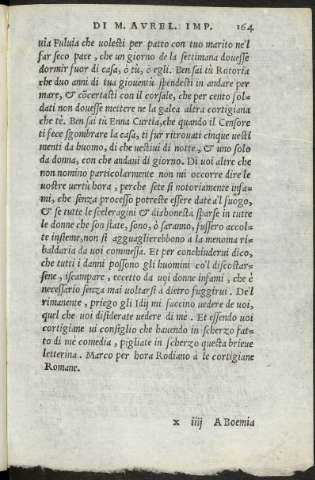 DI M. AVREL. IMP. 164
uia Fuluia che uolesti per patto con tuo marito nel
far seco pace, che un giorno de la settimana douesse
dormir fuor di casa, ò tù, ò egli. Ben sai tù Rutoria
che duo anni di tua giouentù spendesti in andare per
mare, & cōcertasti con il corsale, che per cento sol-
dati non douesse mettere ne la galea altra cortigiana
che tè. Ben sai tù Enna Curtia, che quando il Censore
ti fece sgombrare la casa, ti fur ritrouati cinque uesti
menti da huomo, di che uestiui di notte, & uno solo
da donna, con che andaui di giorno. Di uoi altre che
non nomino particolarmente non mi occorre dire le
uostre uertù hora, perche sete sì notoriamente infa-
mi, che senza processo potreste essere date al fuogo,
& se tutte le sceleragini & dishonestà sparse in tutte
le donne che son state, sono, ò saranno, fussero accol-
te insieme, non si agguaglierebbono à la menoma ri-
balderia da uoi commessa. Et per conchiuderui dico,
che tutti i danni possono gli huomini col discostar-
sene, iscampare, eccetto da uoi donne infami, che è
necessario senza mai uoltarsi à dietro fuggirui. De'l
rimanente, priego gli Idij mi faccino uedere di uoi,
quel che uoi disiderate uedere di mè. Et essendo uoi
cortigiane ui consiglio che hauendo in scherzo fat-
to di mè comedia, pigliate in scherzo questa brieue
letterina. Marco per hora Rodiano à le cortigiane
Romane.
x iiij A Boemia